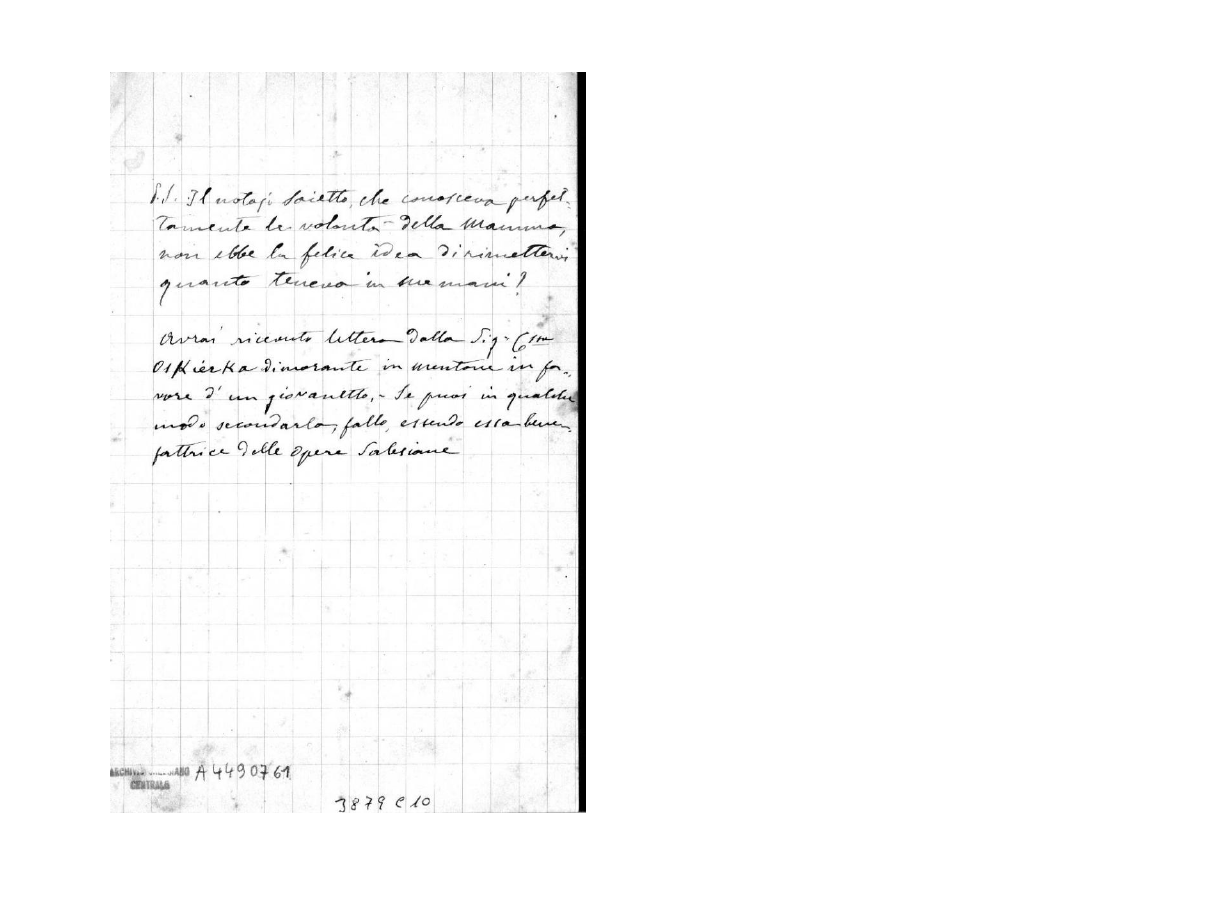 P.S. Il notajo Saietto, che conosceva perfet-
tamente le volontà della Mamma,
non ebbe la felice idea di rimettervi
quanto teneva in sue mani?
Avrai ricevuto lettera dalla Sig. Cssa
Oskierka dimorante in Mentone in fa-
vore d' un giovanetto, - Se puoi in qualche
modo secondarla, fallo, essendo essa bene-
fattrice delle Opere Salesiane
ARCHIVIO SALESIANO
CENTRALE
A4490761
3879 C10